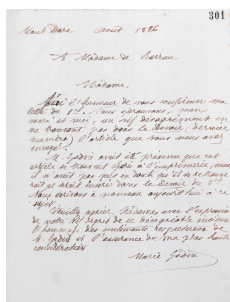 301
Mont Dore Août 1886
A Madame de Barrau
Madame,
J'ai l'honneur de vous confirmer ma
lettre du 1er. Nous éprouvons, mon
mari et moi, un vif désagrément en
ne trouvant pas dans le Devoir, dernier
numéro, l'article que vous nous avez
envoyé.
M. Godin avait été prévenu que cet
article se trouvait prêt à l'imprimerie, mais
il n'avait pas mis en doute qu'il ne
serait inséré dans le Devoir du
Nous écrivons à nouveau aujourd'hui à ce
sujet.
Veuillez agréer, Madame, avec l'expression
de notre vif regret de ce désagréable incident
l'hommage des sentiments respectueux de
M. Godin et l'assurance de ma plus haute
considération
Marie Godin